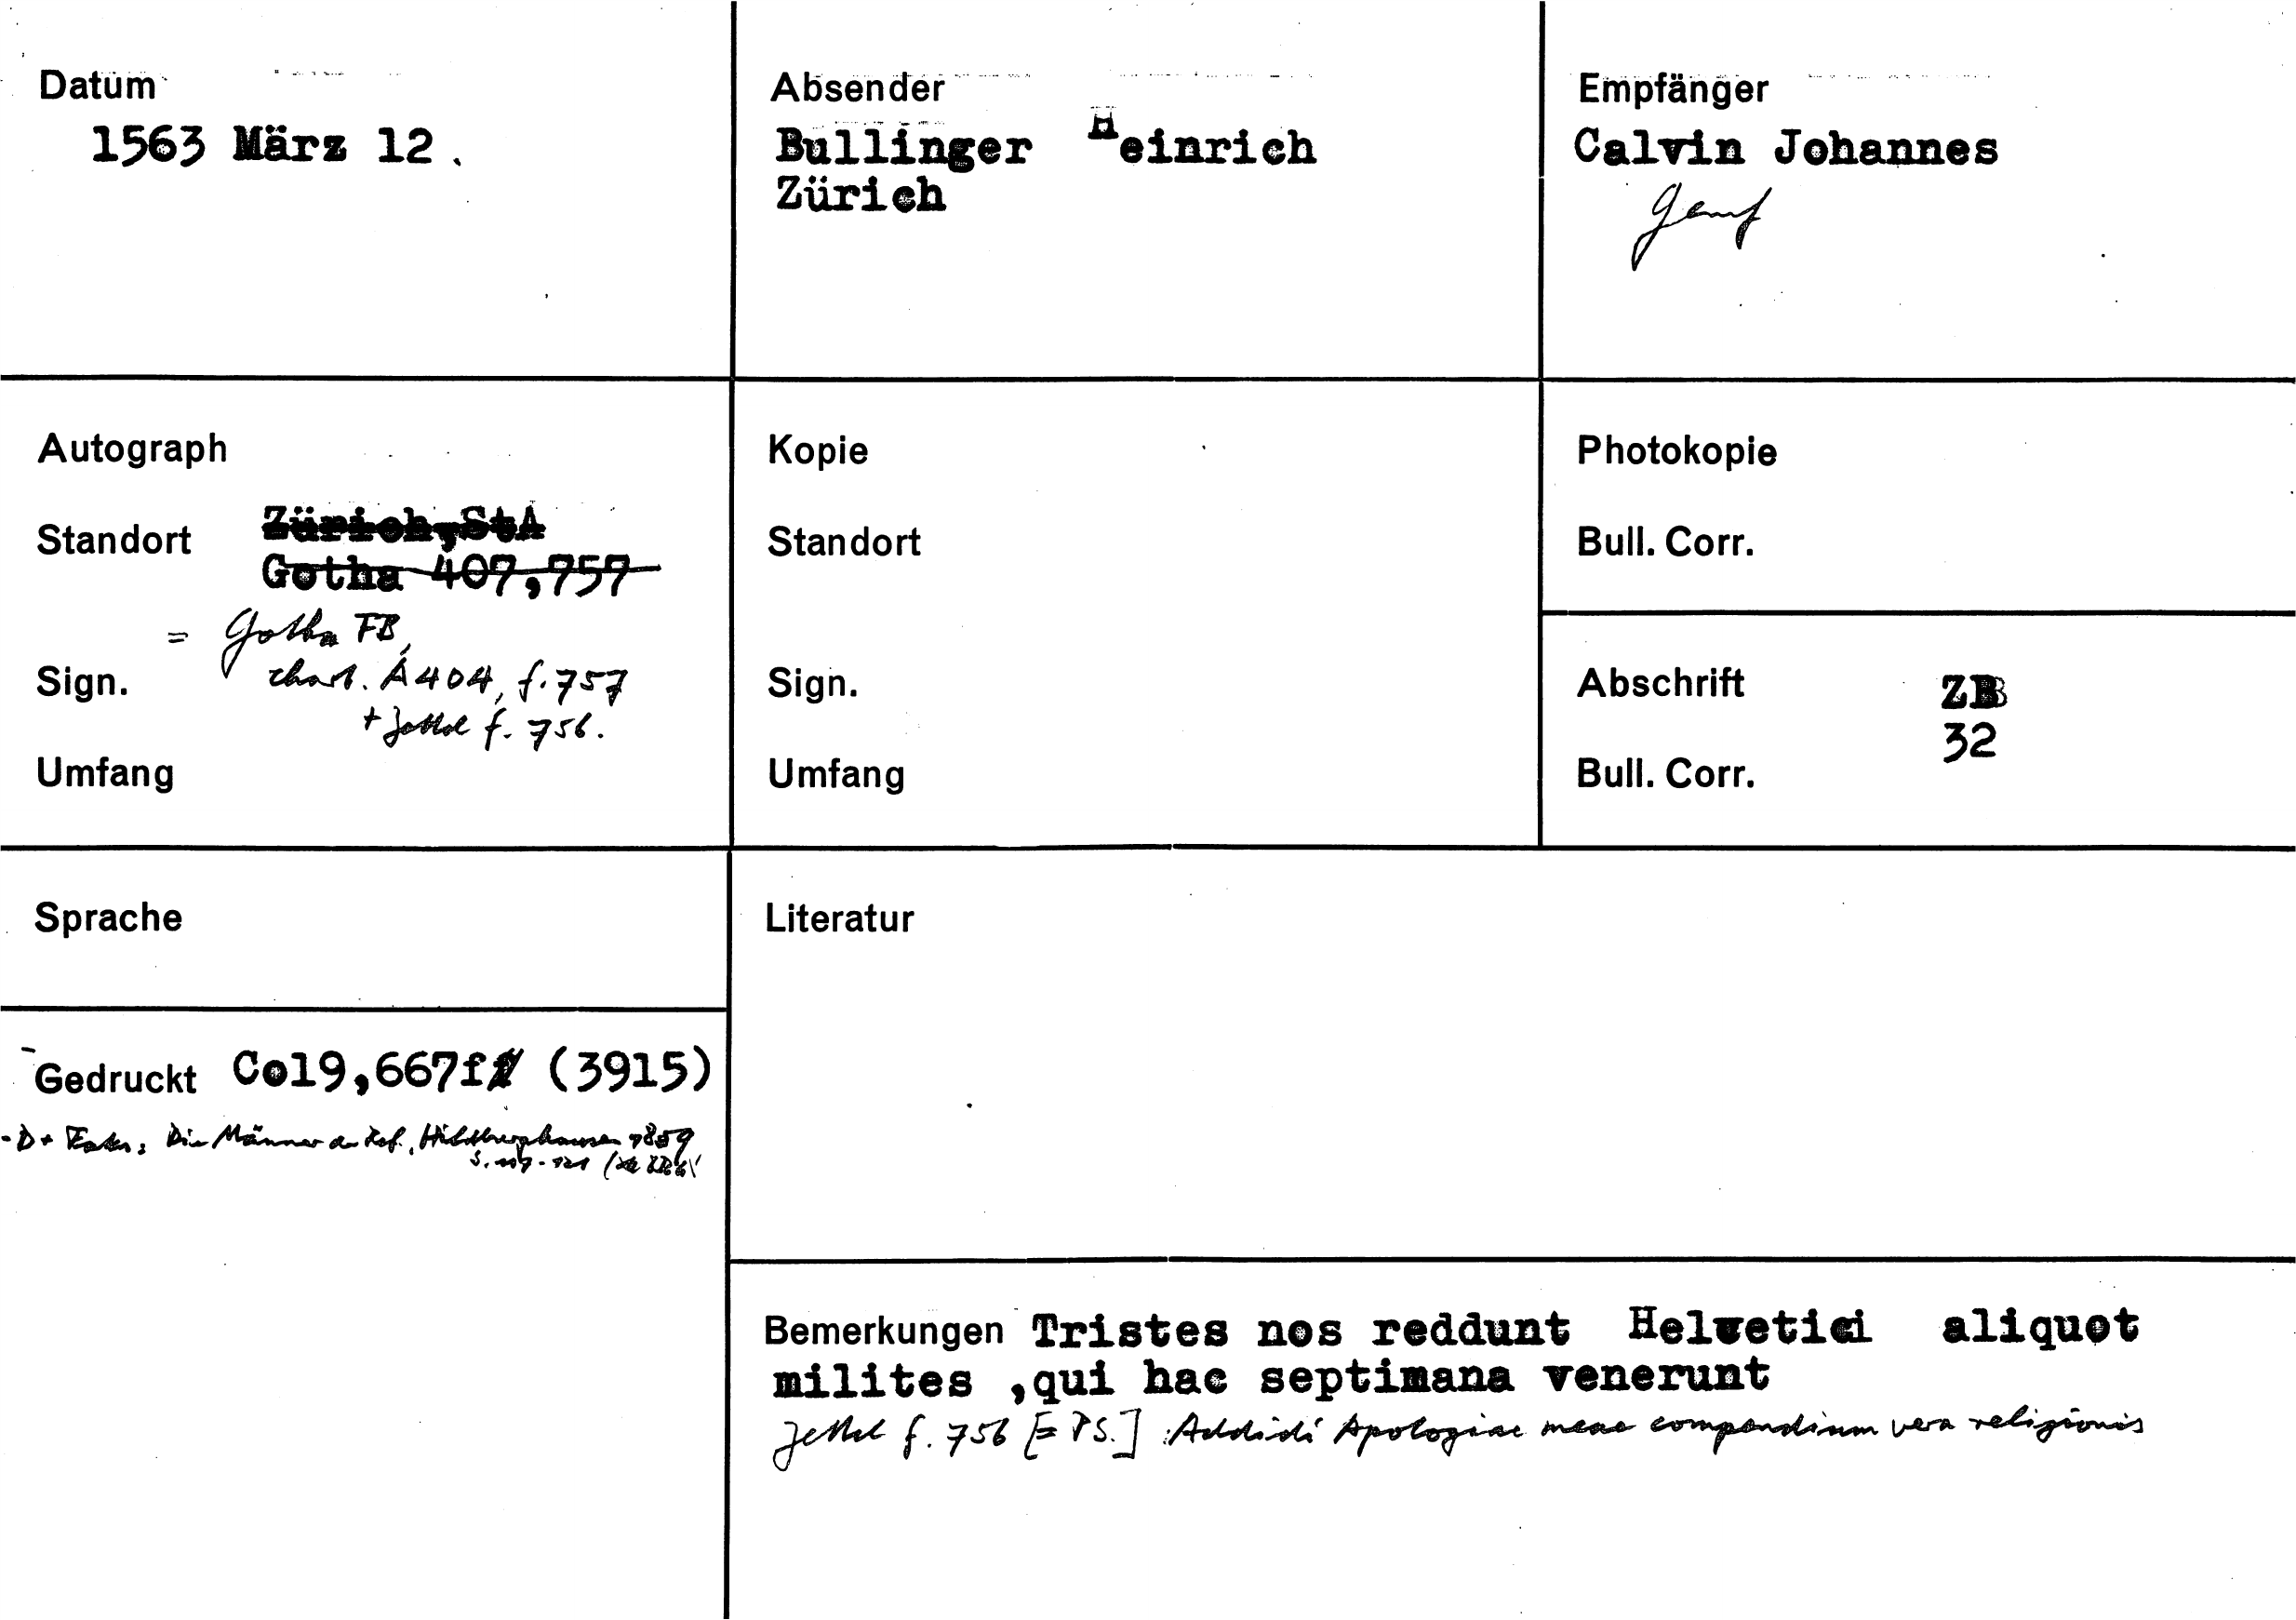 Datum
1563 März 12.
Absender
Bullinger Heinrich
Zürich
Empfänger
Calvin Johannes
Genf
Autograph
Standort Zürich,StA
Gotha 407,757
= Gotha FB,
Sign. chart. A 404, f. 757
+ Zettel f. 756.
Umfang
Kopie
Standort
Sign.
Umfang
Photokopie
Bull. Corr.
Abschrift ZB
32
Bull. Corr.
Sprache
Gedruckt Co19,667ff (3915)
- D + Faks.: Die Männer der Ref., Hildburghausen 1859
S. 119-121
Literatur
Bemerkungen Tristes nos reddunt Helvetici aliquot
milites ,qui hac septimana venerunt
Zettel f. 756 [= PS.] : Addidi Apologiae meae compendium vera religionis